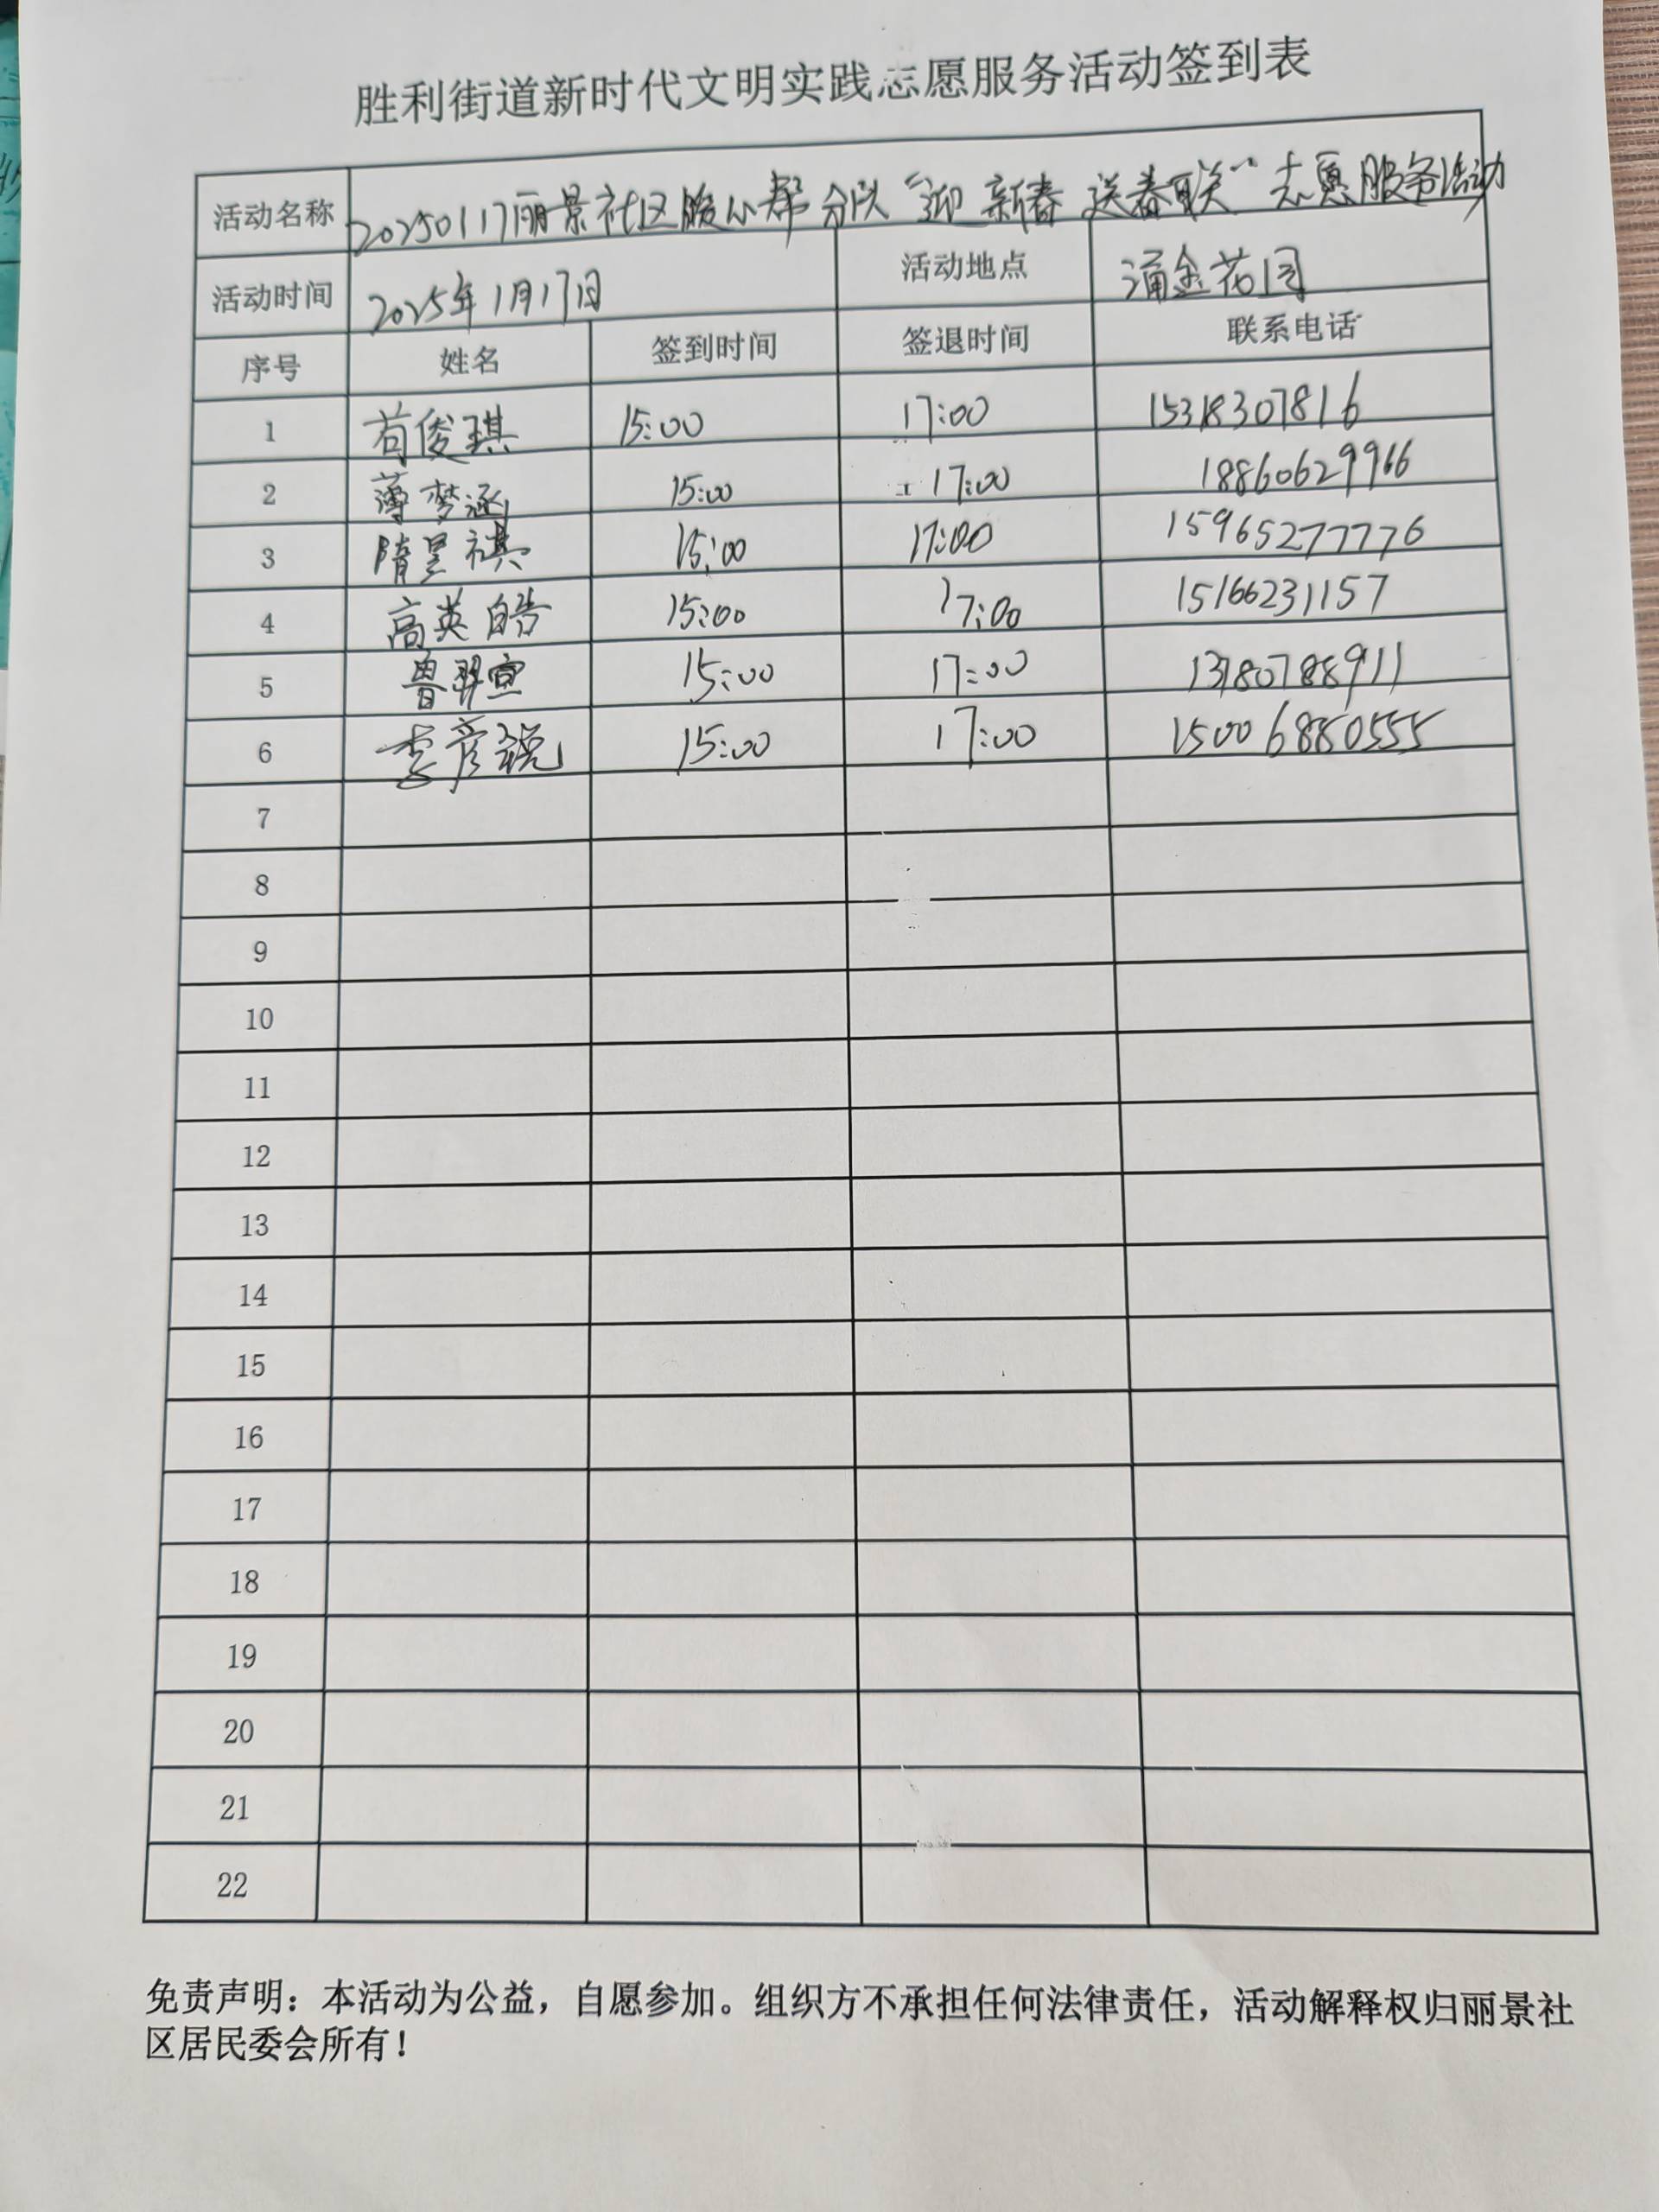 胜利街道新时代文明实践志愿服务活动签到表
活动名称 20250117丽景社区暖心帮分队“迎新春 送春联”志愿服务活动
活动时间 2025年1月17日 活动地点 涌金花园
序号 姓名 签到时间 签退时间 联系电话
1 苟俊琪 15:00 17:00 15318307816
2 薄梦涵 15:00 17:00 18860629966
3 隋昱祺 15:00 17:00 15965277776
4 高英皓 15:00 17:00 15166231157
5 鲁羿宣 15:00 17:00 13780788911
6 李彦锐 15:00 17:00 15006880555
7
8
9
10
11
12
13
14
15
16
17
18
19
20
21
22
免责声明：本活动为公益，自愿参加。组织方不承担任何法律责任，活动解释权归丽景社
区居民委会所有！